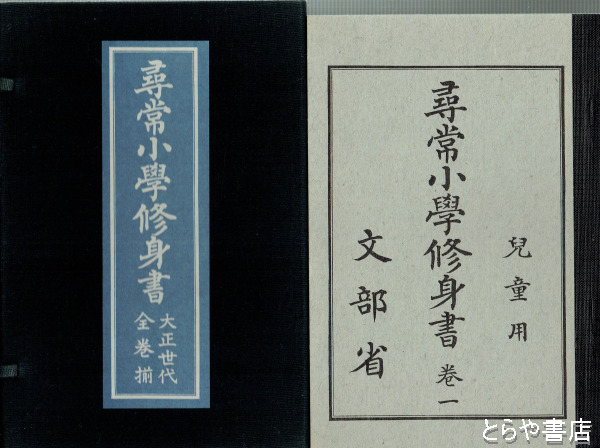 尋常小學修身書
大正世代
全巻揃
兒童用
尋常小學修身書 卷一
文部省
とらや書店